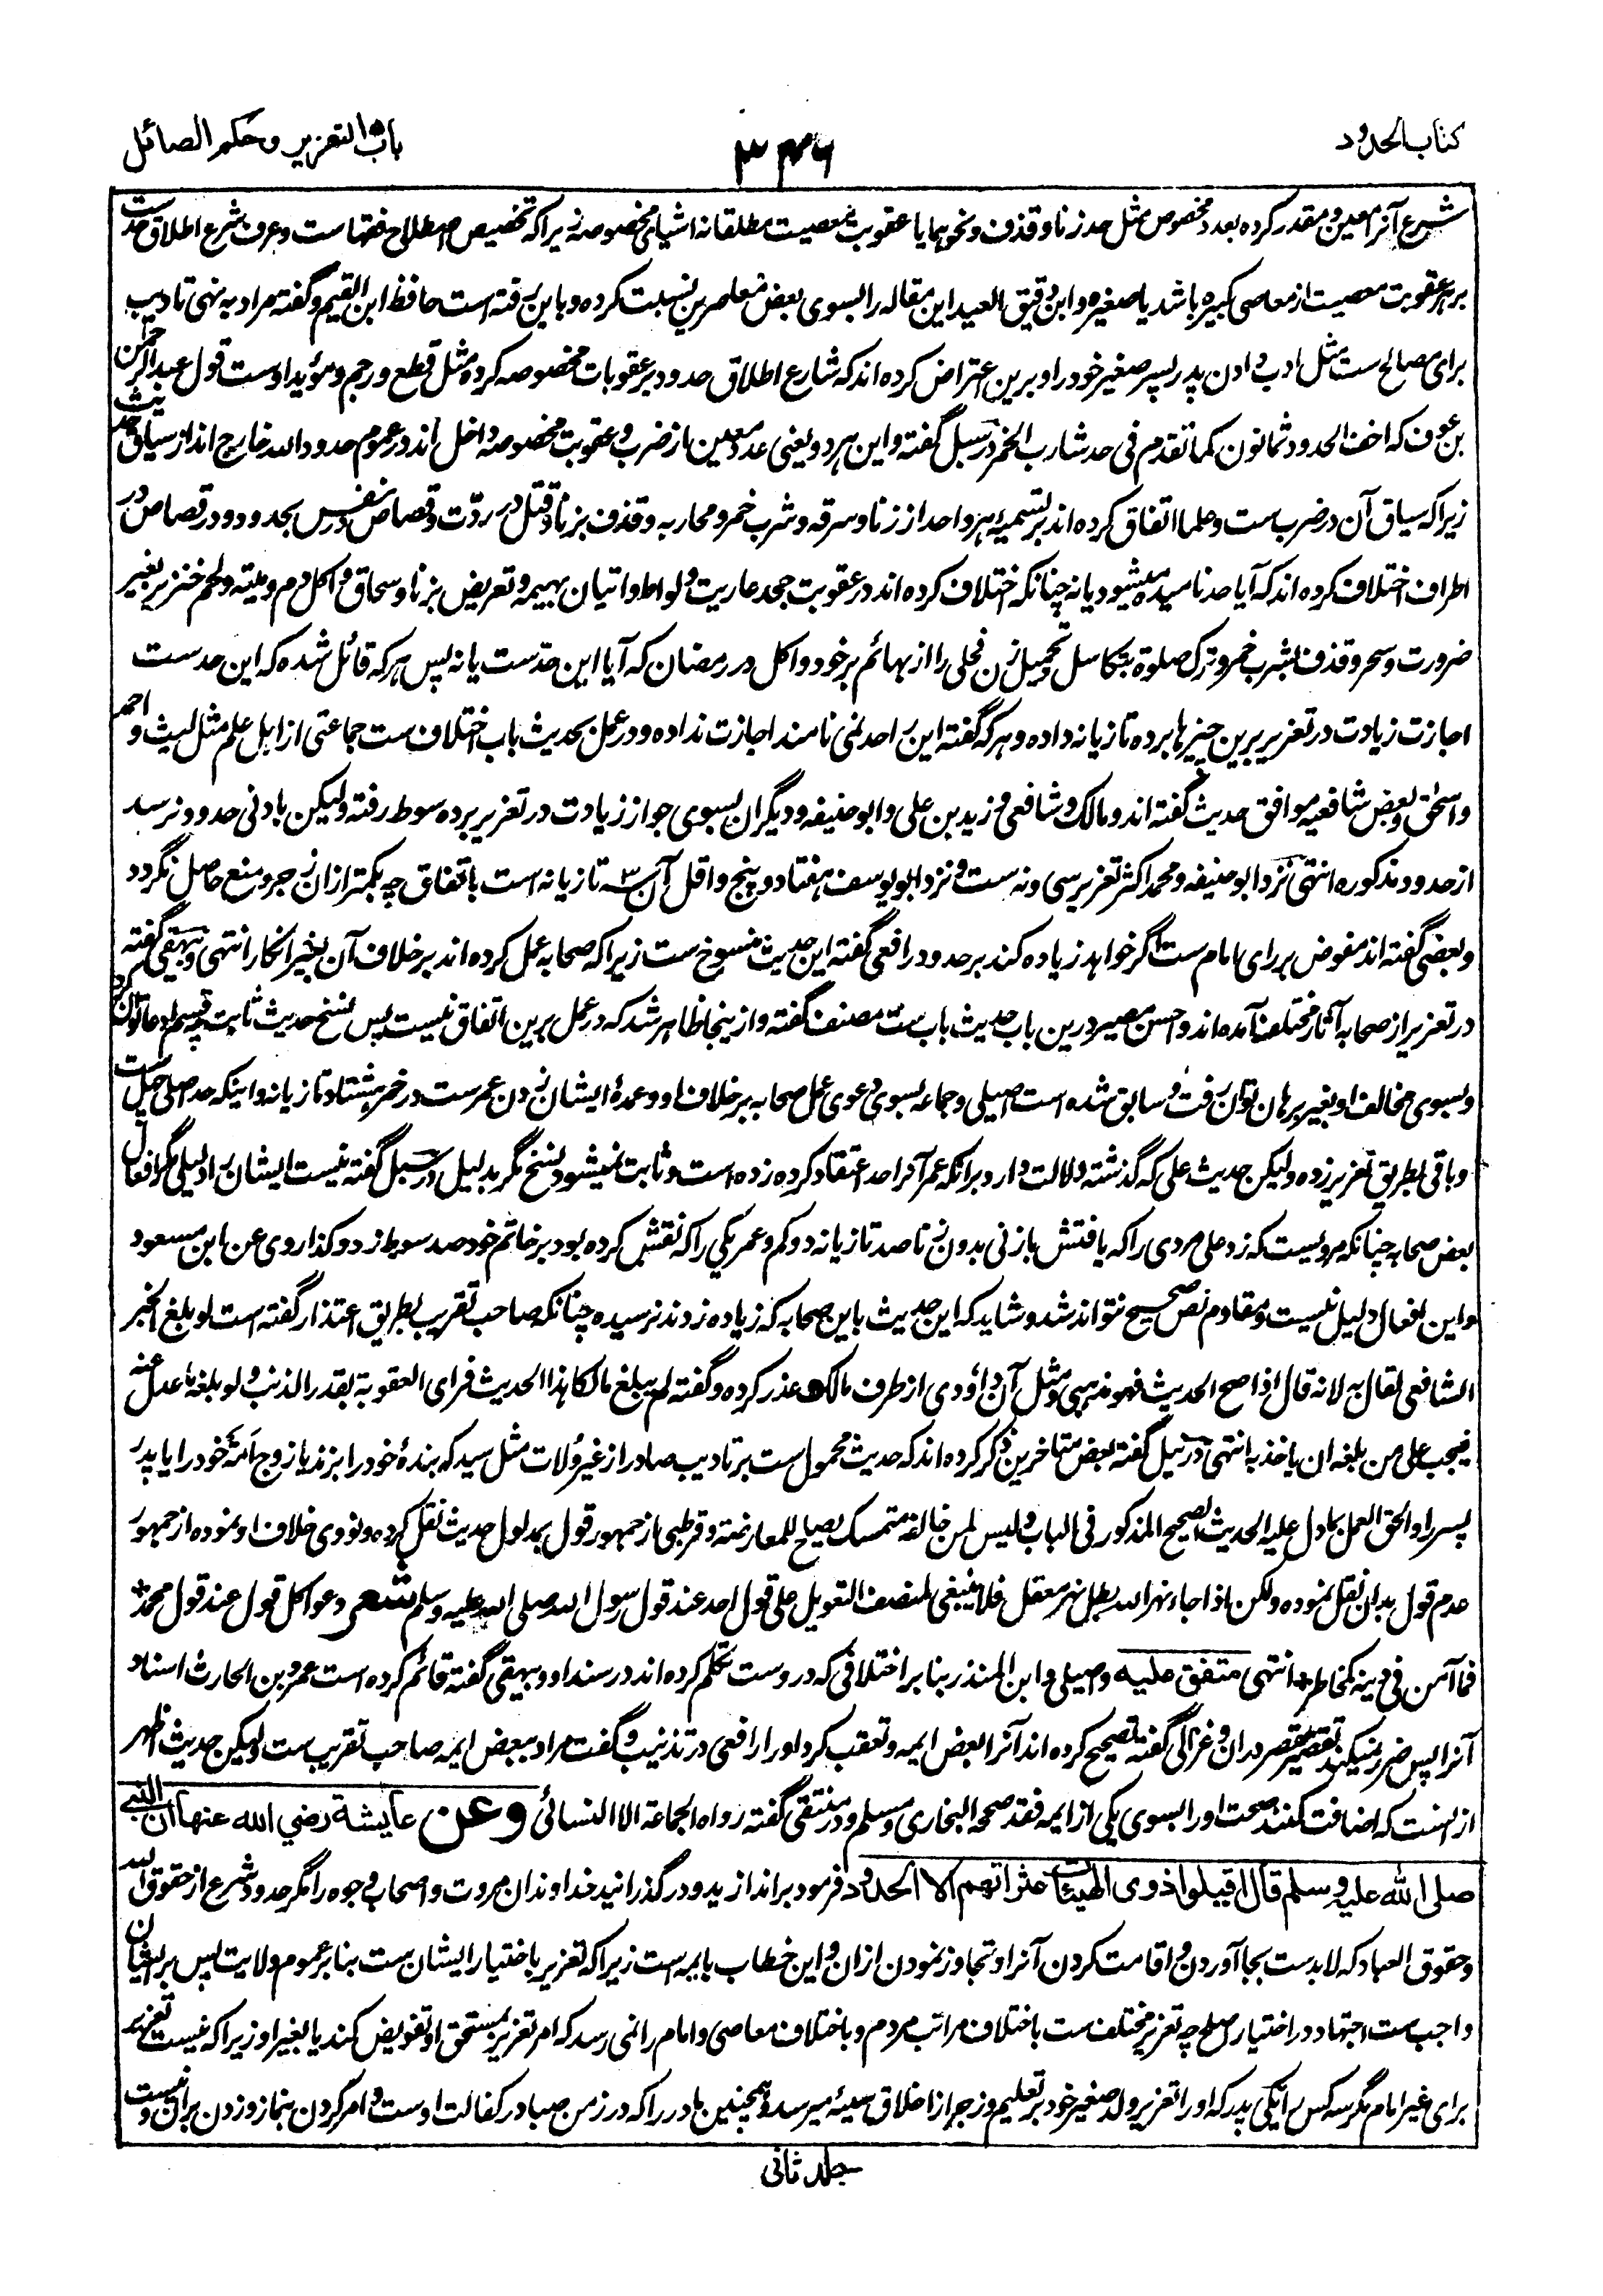 کتاب الحدود
۳۴۶
باب التعزیر و حکم الصائل
شرع آنرا معین و مقدر کرده بعدد مخصوص مثل حد زنا و قذف و نحوهما یا عقوبت معصیت مطلقا نه اشیای مخصوصه زیراکه تخصیص اصطلاح فقهاست و عرف شرع اطلاق حدست
بر هر عقوبت معصیت از معاصی کبیره باشد یا صغیره و ابن دقیق العید این مقاله را بسوی بعض معاصرین نسبت کرده و باین رفته است حافظ ابن القیم و گفته مراد به نهی تادیب
برای مصالح ست مثل ادب دادن پدر پسر صغیر خود را و برین اعتراض کرده اند که شارع اطلاق حدود بر عقوبات مخصوصه کرده مثل قطع و رجم و مؤید اوست قول عبد الرحمن
بن عوف که اخف الحدود ثمانون کما تقدم فی حد شارب الخمر در سبل گفته و این هر دو یعنی عدد معین از ضرب و عقوبت مخصوصه داخل اند در عموم حدود الله خارج اند از سیاق حدیث
زیراکه سیاق آن در ضرب ست و علما اتفاق کرده اند بر تسمیهٔ هر واحد از زنا و سرقه و شرب خمر و محاربه و قذف بزنا و قتل در ردّت و قصاص در نفس بحد و در قصاص در
اطراف اختلاف کرده اند که آیا حد نامیده میشود یا نه چنانکه اختلاف کرده اند در عقوبت جحد عاریت و لواط و اتیان بهیمه و تعریض بزنا و سحاق و اکل دم و میته و لحم خنزیر بغیر
ضرورت و سحر و قذف بشرب خمر و ترک صلوة بتکاسل و تحمیل زن فحلی را از بهائم بر خود و اکل در رمضان که آیا این حدست یا نه پس هر که قائل شده که این حدست
اجازت زیادت در تعزیر برین چیزها بر ده تازیانه داده و هر که گفته این را حد نمی نامند اجازت نداده و در عمل بحدیث باب اختلاف ست جماعتی از اهل علم مثل لیث و احمد
و اسحٰق و بعض شافعیه موافق حدیث گفته اند و مالک و شافعی و زید بن علی و ابو حنیفه و دیگران بسوی جواز زیادت در تعزیر بر ده سوط رفته و لیکن بادنی حدود نرسد
از حدود مذکوره انتهی نزد ابو حنیفه و محمد اکثر تعزیر سی و نه ست و نزد ابو یوسف هفتاد و پنج و اقل آن سه تازیانه است باتفاق چه بکمتر ازان زجر و منع حاصل نگردد
و بعضی گفته اند مفوض بر رای امام ست اگر خواهد زیاده کند بر حدود رافعی گفته این حدیث منسوخ ست زیراکه صحابه عمل کرده اند بر خلاف آن بغیر انکار انتهی و بیهقی گفته
در تعزیر از صحابه آثار مختلف آمده اند و احسن مصیر درین باب حدیث باب ست مصنف گفته و ازینجا ظاهر شد که در عمل برین اتفاق نیست پس نسخ حدیث ثابت چه قسم ادعا توان کرد
و بسوی مخالف او بغیر برهان توان رفت و سابق شده است اصیلی و جماعه بسوی دعوی عمل صحابه بر خلاف او و عمدهٔ ایشان زدن عمرست در خمر هشتاد تازیانه و اینکه حد اصلی چهل ست
و باقی بطریق تعزیر زده و لیکن حدیث علی که گذشته دلالت دارد بر آنکه عمر آنرا حد اعتقاد کرده زده است و ثابت نمیشود نسخ مگر بدلیل و در سبل گفته نیست ایشان را دلیلی مگر افعال
بعض صحابه چنانکه مرویست که زد علی مردی را که یافتش با زنی بدون زنا صد تازیانه دو کم و عمر یکی را که نقش کرده بود بر خاتم خود صد سوط زد و کذا روی عن ابن مسعود
و این افعال دلیل نیست و مقاوم نص صحیح نتواند شد و شاید که این حدیث باین صحابه که زیاده زدند نرسیده چنانکه صاحب تقریب بطریق اعتذار گفته است لو بلغ الخبر
الشافعی لقال به لانه قال اذا صح الحدیث فهو مذهبی و مثل آن داؤدی از طرف مالک عذر کرده و گفته لم یبلغ مالکا هذا الحدیث فرای العقوبة بقدر الذنب و لو بلغه ما عدل عنه
فیجب علی من بلغه ان یاخذ به انتهی در نیل گفته بعض متاخرین ذکر کرده اند که حدیث محمول ست بر تادیب صادر از غیر ولات مثل سید که بندهٔ خود را بزند یا زوج امه خود را یا پدر
پسر را و الحق العمل بما دل علیه الحدیث الصحیح المذکور فی الباب و لیس لمن خالفه متمسک یصلح للمعارضة و قرطبی از جمهور قول بمدلول حدیث نقل کرده و نووی خلاف او نموده از جمهور
عدم قول بدان نقل نموده و لکن اذا جاء نهر الله بطل نهر معقل فلا ینبغی لمنصف التعویل علی قول احد عند قول رسول الله صلی الله علیه و سلم شعر دعوا کل قول عند قول محمد *
فما آمن فی دینه کمخاطر * انتهی متفق علیه و اصیلی و ابن المنذر بنا بر اختلافی که دروست تکلم کرده اند در سند او و بیهقی گفته قائم کرده است عمرو بن الحارث اسناد
آنرا پس ضرر نمیکند تقصیر مقصر دران و غزالی گفته تصحیح کرده اند آنرا بعض ایمه و تعقب کرد او را رافعی در تذنیب و گفت مراد ببعض ایمه صاحب تقریب ست و لیکن حدیث اظهر
ازانست که اضافت کنند صحت او را بسوی یکی از ایمه فقد صححه البخاری و مسلم و در منتقی گفته رواه الجماعة الا النسائی وعن عایشة رضی الله عنها ان النبی
صلی الله علیه وسلم قال اقیلوا ذوی الهیئات عثراتهم الا الحدود فرمود بر اندازید و در گذرانید خداوندان مروت و اصحاب وجوه را مگر حدود شرع از حقوق الله
و حقوق العباد که لابدست بجا آوردن و اقامت کردن آنرا و تجاوز نمودن ازان و این خطاب بایمه است زیراکه تعزیر باختیار ایشان ست بنا بر عموم ولایت پس بر ایشان
واجب ست اجتهاد در اختیار اصلح چه تعزیر مختلف ست باختلاف مراتب مردم و باختلاف معاصی و امام را نمی رسد که امر تعزیر بمستحق او تفویض کند یا بغیر او زیراکه نیست تعزیر
برای غیر امام مگر سه کس را یکی پدر که او را تعزیر ولد صغیر خود بر تعلیم و زجر از اخلاق سیئه میرسد و همچنین مادر را که در زمن صبا در کفالت اوست و امر کردن بنماز و زدن بران و نیست
جلد ثانی